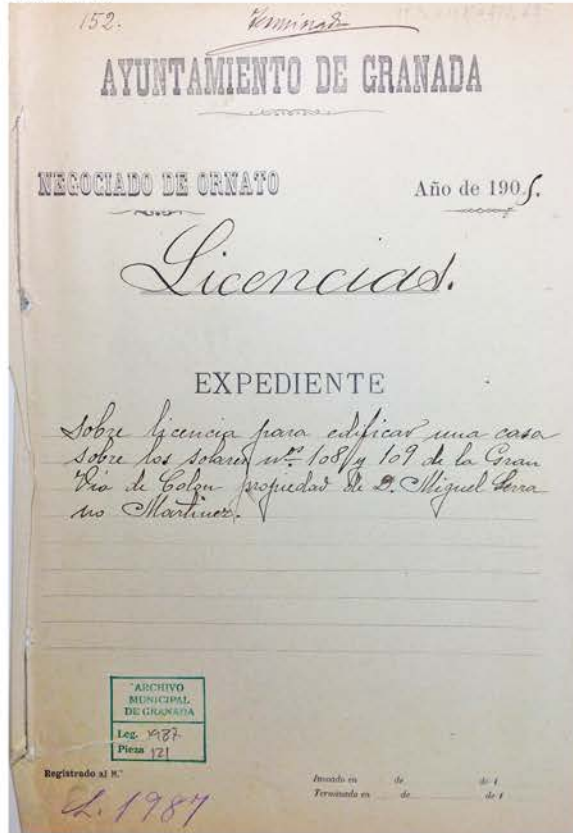 152.
Terminado
AYUNTAMIENTO DE GRANADA
NEGOCIADO DE ORNATO
Año de 1905.
Licencias.
EXPEDIENTE
Sobre licencia para edificar una casa
sobre los solares nos 108 y 109 de la Gran
Via de Colon propiedad de D. Miguel Serra
no Martinez.
ARCHIVO
MUNICIPAL
DE GRANADA
Leg. 1987
Pieza 121
Registrado al N.º
L. 1987
Incoado en de de 1
Terminado en de de 1